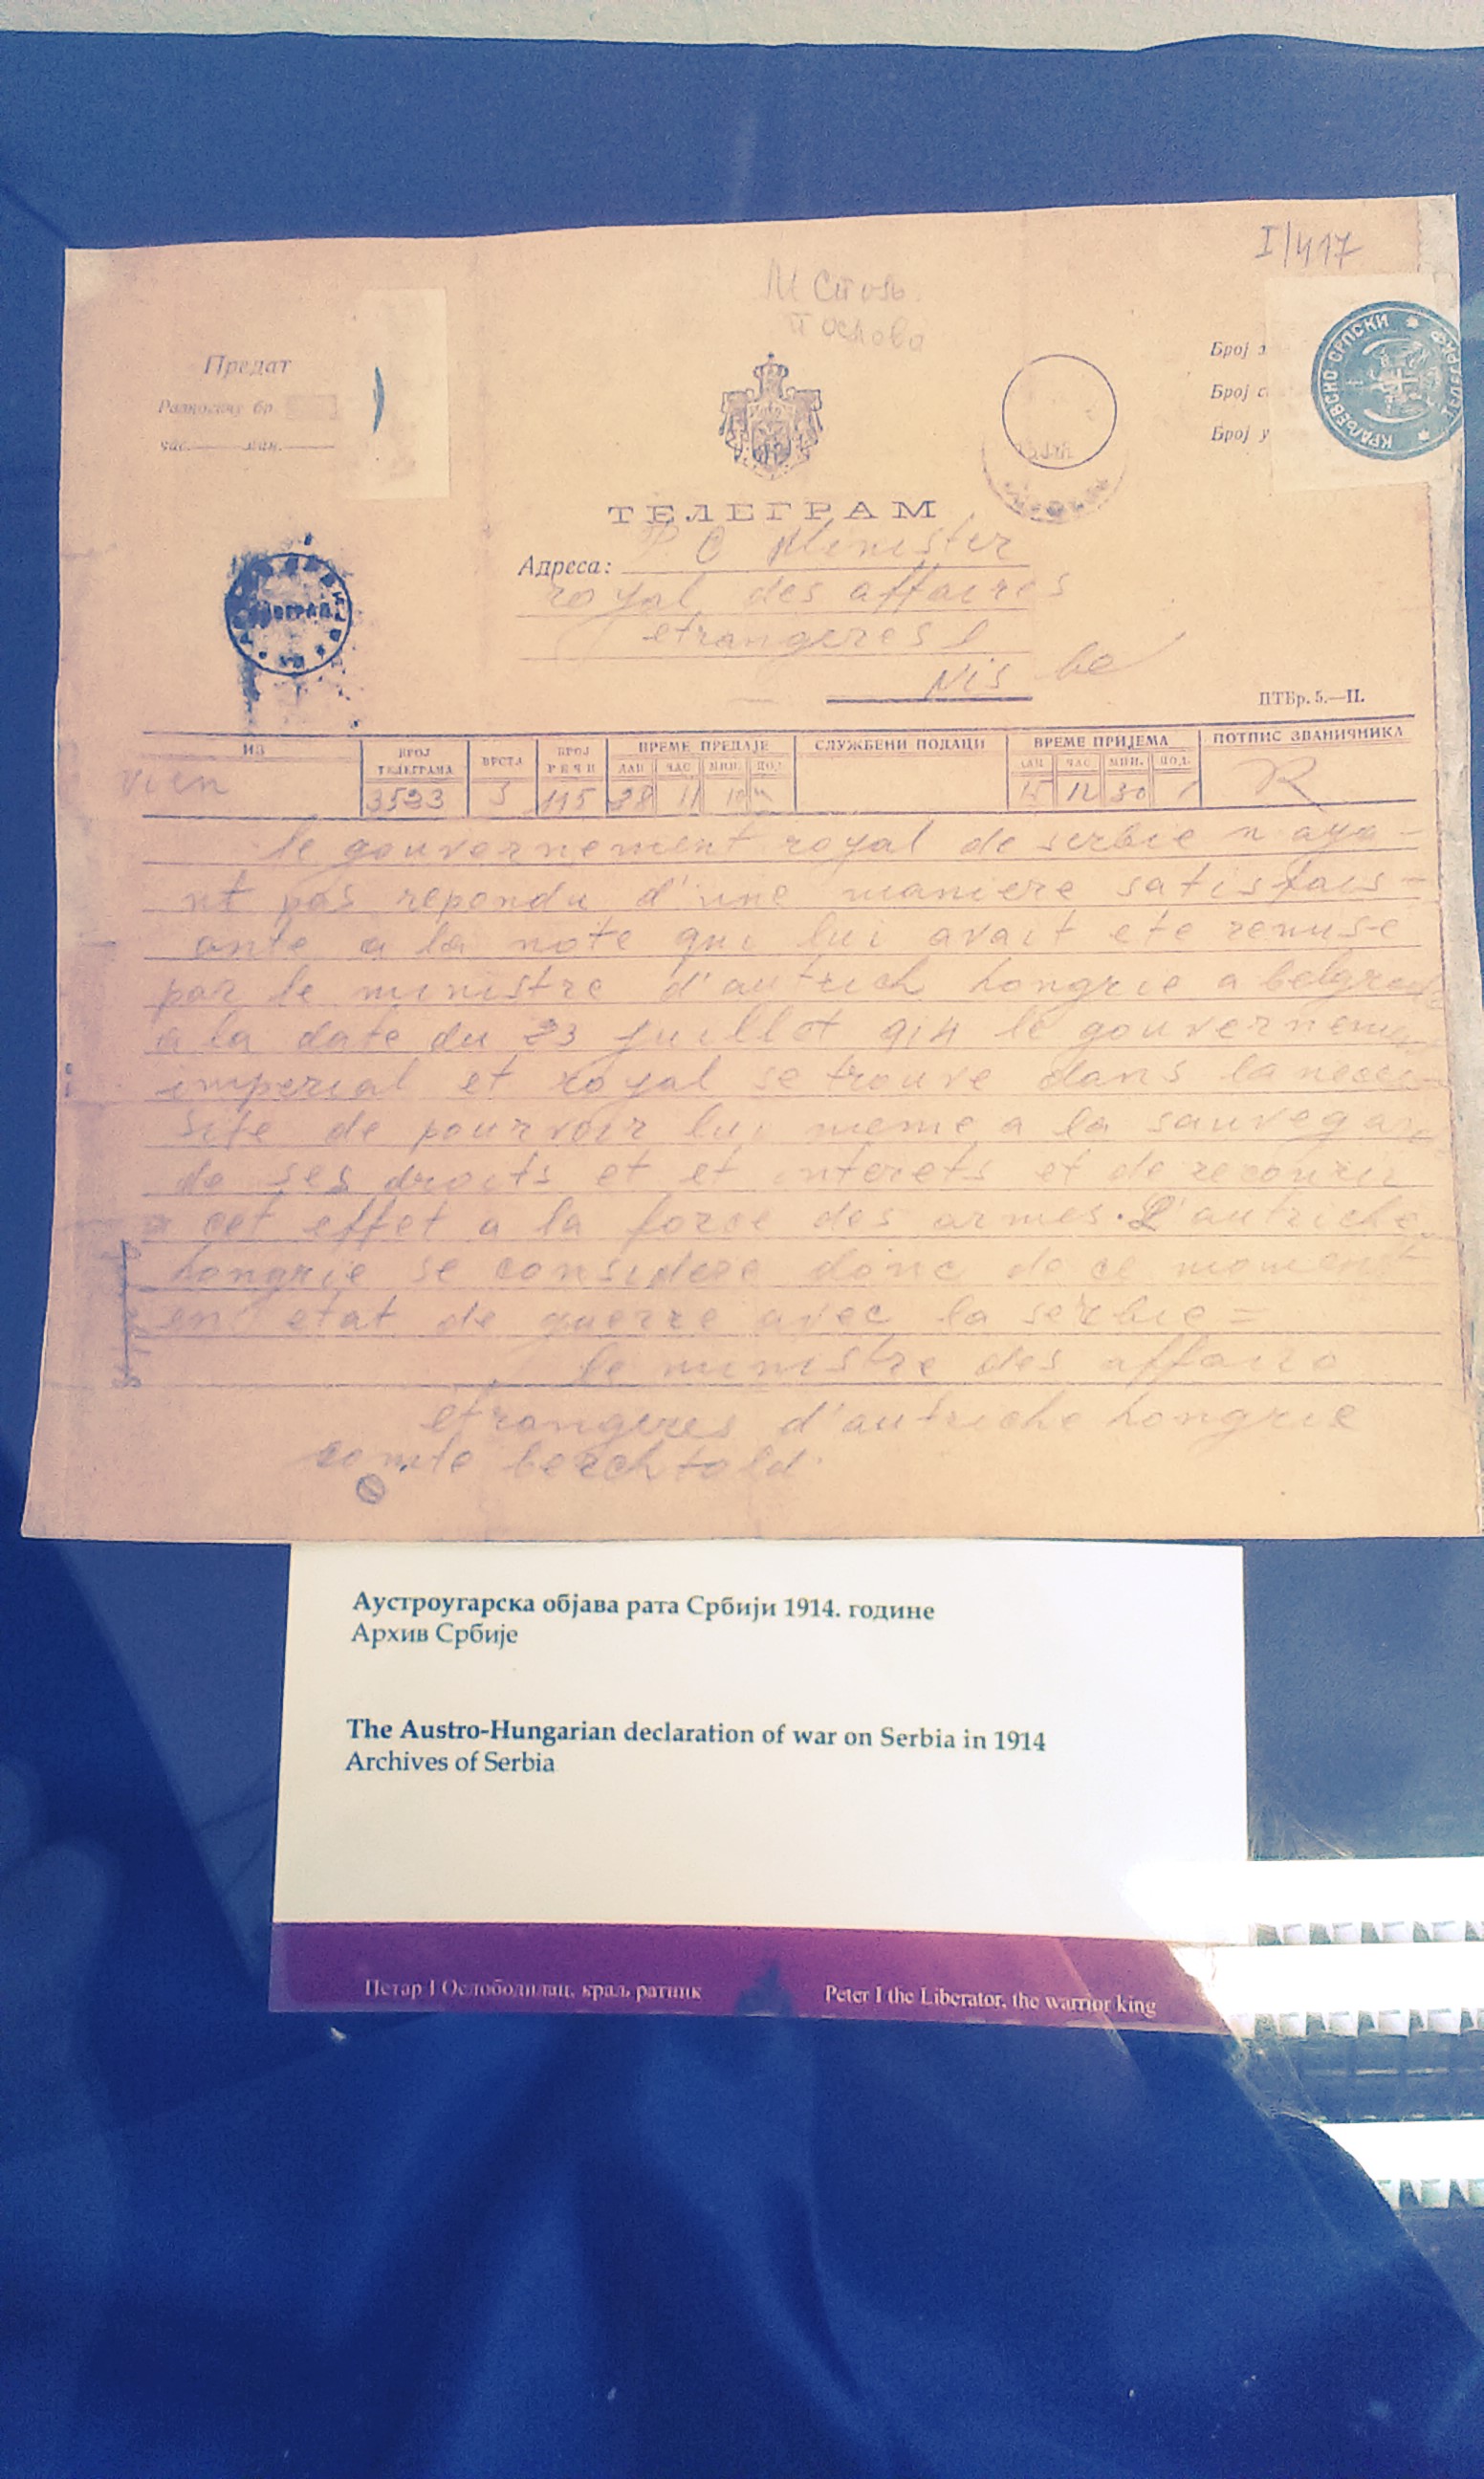 I/417
М Спољ.
послова
Предат
Разносачу бр.
час. мин.
Број
Број
Број у
КРАЉЕВСКО СРПСКИ
ТЕЛЕГРАМ
Адреса: Minister
royal des affaires
etrangeres
Nis
ПТБр. 5.—II.
ИЗ БРОЈ ТЕЛЕГРАМА ВРСТА БРОЈ РЕЧИ ВРЕМЕ ПРЕДАЈЕ СЛУЖБЕНИ ПОДАЦИ ВРЕМЕ ПРИЈЕМА ПОТПИС ЗВАНИЧНИКА
ДАН ЧАС МИН. ПОД. ДАН ЧАС МИН. ПОД.
3523 115 28 11 10 12 30 R
le gouvernement royal de serbie n aya-
nt pas repondu d'une maniere satisfais-
ante a la note qui lui avait ete remise
par le ministre d'autrich hongrie a belgrade
a la date du 23 juillet 914 le gouvernement
imperial et royal se trouve dans la neces-
site de pourvoir lui meme a la sauvegar
de ses droits et et interets et de recourir
a cet effet a la force des armes. L'autriche
hongrie se considere donc de ce moment
en etat de guerre avec la serbie =
le ministre des affaire
etrangeres d'autriche hongrie
comte berchtold.
Аустроугарска објава рата Србији 1914. године
Архив Србије
The Austro-Hungarian declaration of war on Serbia in 1914
Archives of Serbia
Петар I Ослободилац, краљ ратник Peter I the Liberator, the warrior king